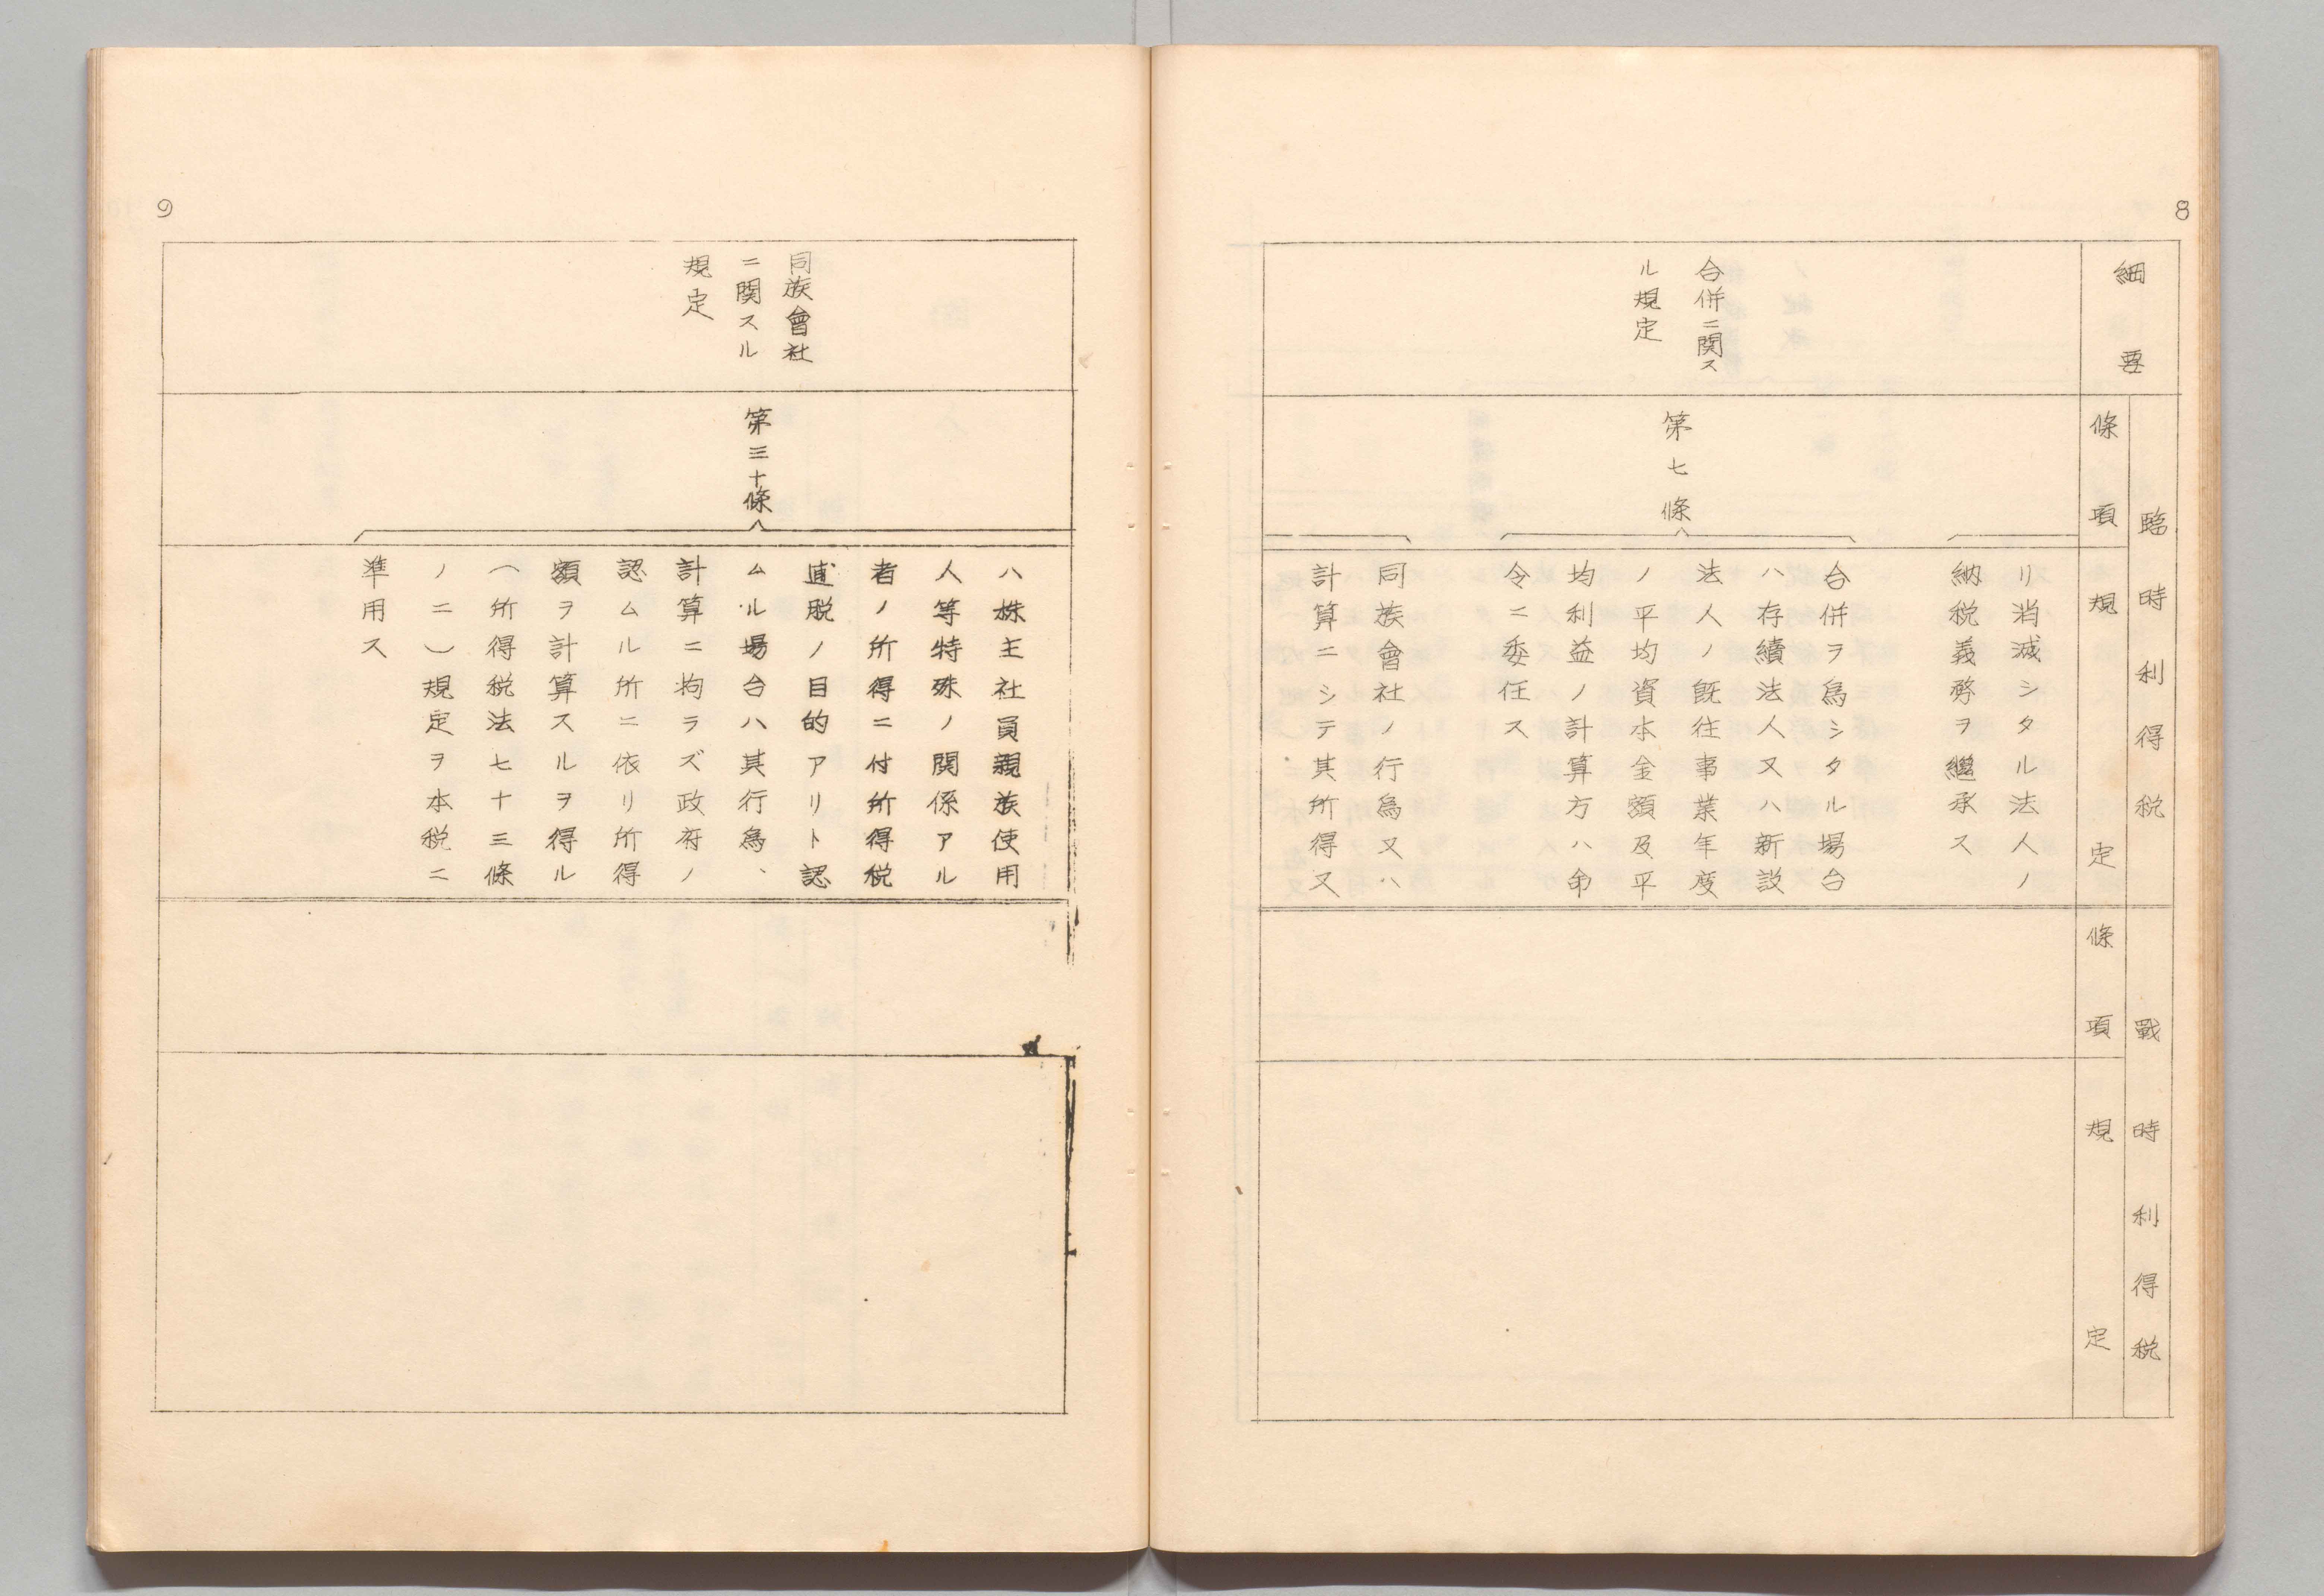 8
綱要
臨時利得税
條項
規定
戰時利得税
條項
規定
リ消滅シタル法人ノ
納税義務ヲ繼承ス
合併ニ関ス
ル規定
第七條
合併ヲ爲シタル場合
ハ存續法人又ハ新設
法人ノ既往事業年度
ノ平均資本金額及平
均利益ノ計算方ハ命
令ニ委任ス
同族會社ノ行爲又ハ
計算ニシテ其所得又
9
同族會社
ニ関スル
規定
第三十條
ハ株主社員親族使用
人等特殊ノ関係アル
者ノ所得ニ付所得税
逋脱ノ目的アリト認
ムル場合ハ其行爲、
計算ニ拘ラズ政府ノ
認ムル所ニ依リ所得
額ヲ計算スルヲ得ル
(所得税法七十三條
ノ二)規定ヲ本税ニ
準用ス